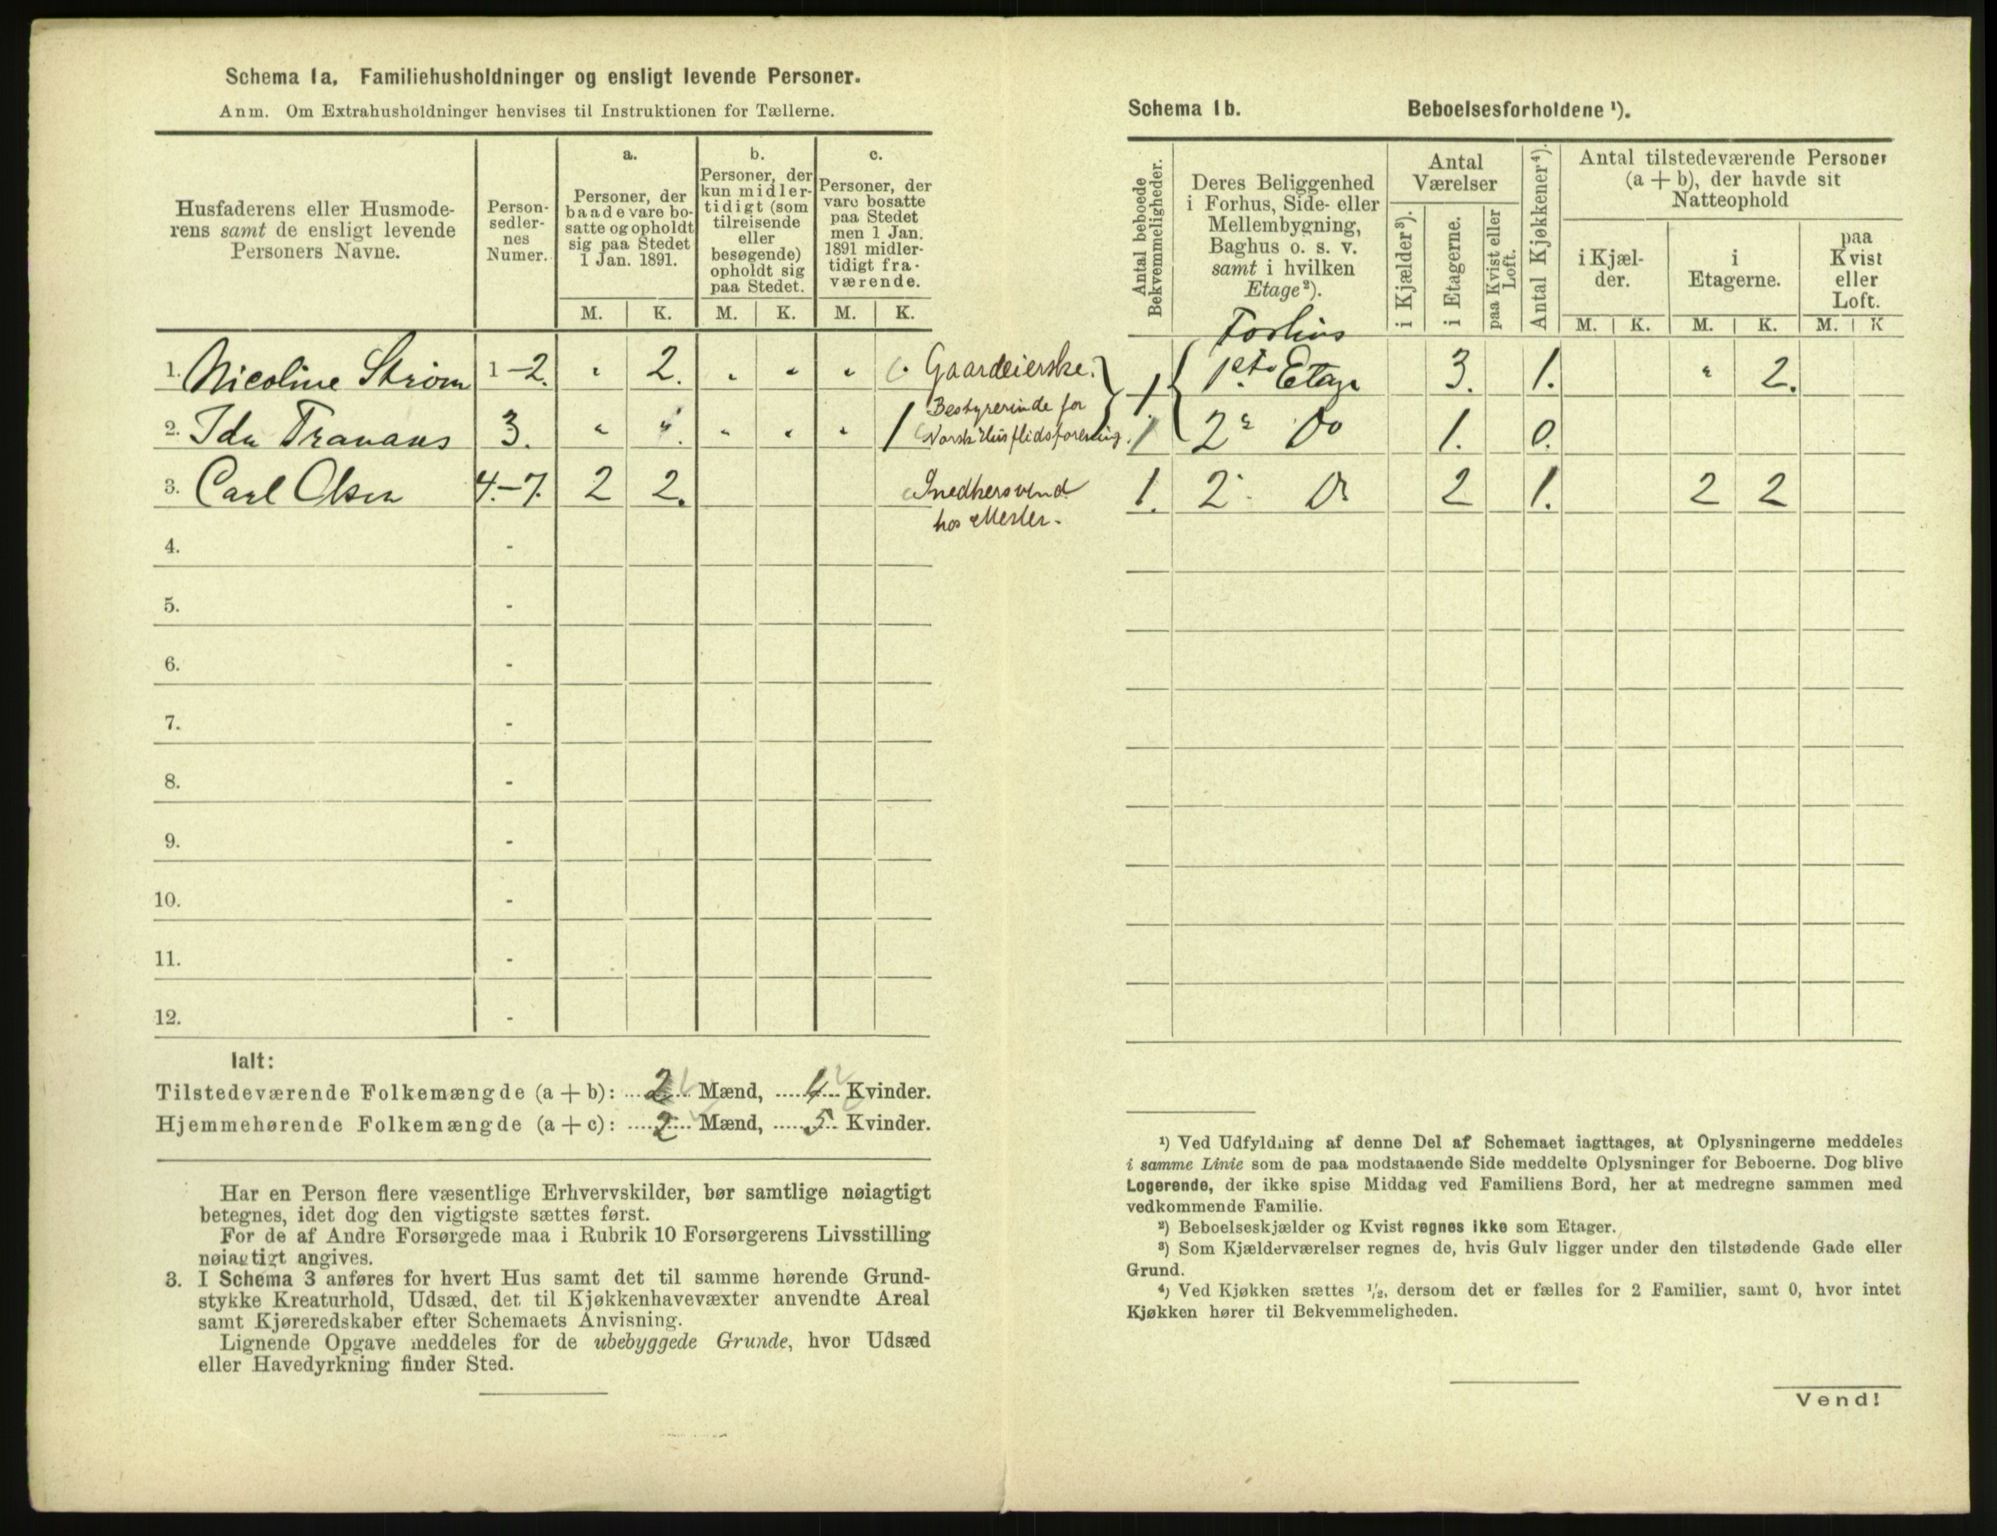 Schema 1a. Familiehusholdninger og ensligt levende Personer.
Anm. Om Extrahusholdninger henvises til Instruktionen for Tællerne.
Husfaderens eller Husmode-
rens samt de ensligt levende
Personers Navne.
Person-
sedler-
nes
Numer.
a.
Personer, der
baade vare bo-
satte og opholdt
sig paa Stedet
1 Jan. 1891.
b.
Personer, der
kun midler-
tidigt (som
tilreisende
eller
besøgende)
opholdt sig
paa Stedet.
c.
Personer, der
vare bosatte
paa Stedet
men 1 Jan.
1891 midler-
tidigt fra-
værende.
M. K. M. K. M. K.
1. Nicoline Strøm 1-2. " 2. " " " " Gaardeierske.
2. Ida 3. " " " " " 1 Bestyrerinde for
Norsk Husflidsforening.
3. Carl Olsen 4.-7. 2 2. Snedkersvend
hos Mester.
4. -
5. -
6. -
7. -
8. -
9. -
10. -
11. -
12. -
Ialt:
Tilstedeværende Folkemængde (a + b): 2 Mænd, 4 Kvinder.
Hjemmehørende Folkemængde (a + c): 2 Mænd, 5 Kvinder.
Har en Person flere væsentlige Erhvervskilder, bør samtlige nøiagtigt
betegnes, idet dog den vigtigste sættes først.
For de af Andre Forsørgede maa i Rubrik 10 Forsørgerens Livsstilling
nøiagtigt angives.
3. I Schema 3 anføres for hvert Hus samt det til samme hørende Grund-
stykke Kreaturhold, Udsæd, det til Kjøkkenhavevæxter anvendte Areal
samt Kjøreredskaber efter Schemaets Anvisning.
Lignende Opgave meddeles for de ubebyggede Grunde, hvor Udsæd
eller Havedyrkning finder Sted.
Schema 1b. Beboelsesforholdene ¹).
Antal beboede
Bekvemmeligheder.
Deres Beliggenhed
i Forhus, Side- eller
Mellembygning,
Baghus o. s. v.
samt i hvilken
Etage²).
Antal
Værelser
i Kjælder³).
i Etagerne.
paa Kvist eller
Loft.
Antal Kjøkkener⁴).
Antal tilstedeværende Personer
(a + b), der havde sit
Natteophold
i Kjæl-
der.
i
Etagerne.
paa
Kvist
eller
Loft.
M. K. M. K. M. K
Forhus
1 1ste Etage 3. 1. " 2.
1 2" Do 1. 0.
1. 2" Do 2 1. 2 2
¹) Ved Udfyldning af denne Del af Schemaet iagttages, at Oplysningerne meddeles
i samme Linie som de paa modstaaende Side meddelte Oplysninger for Beboerne. Dog blive
Logerende, der ikke spise Middag ved Familiens Bord, her at medregne sammen med
vedkommende Familie.
²) Beboelseskjælder og Kvist regnes ikke som Etager.
³) Som Kjælderværelser regnes de, hvis Gulv ligger under den tilstødende Gade eller
Grund.
⁴) Ved Kjøkken sættes ½, dersom det er fælles for 2 Familier, samt 0, hvor intet
Kjøkken hører til Bekvemmeligheden.
Vend!